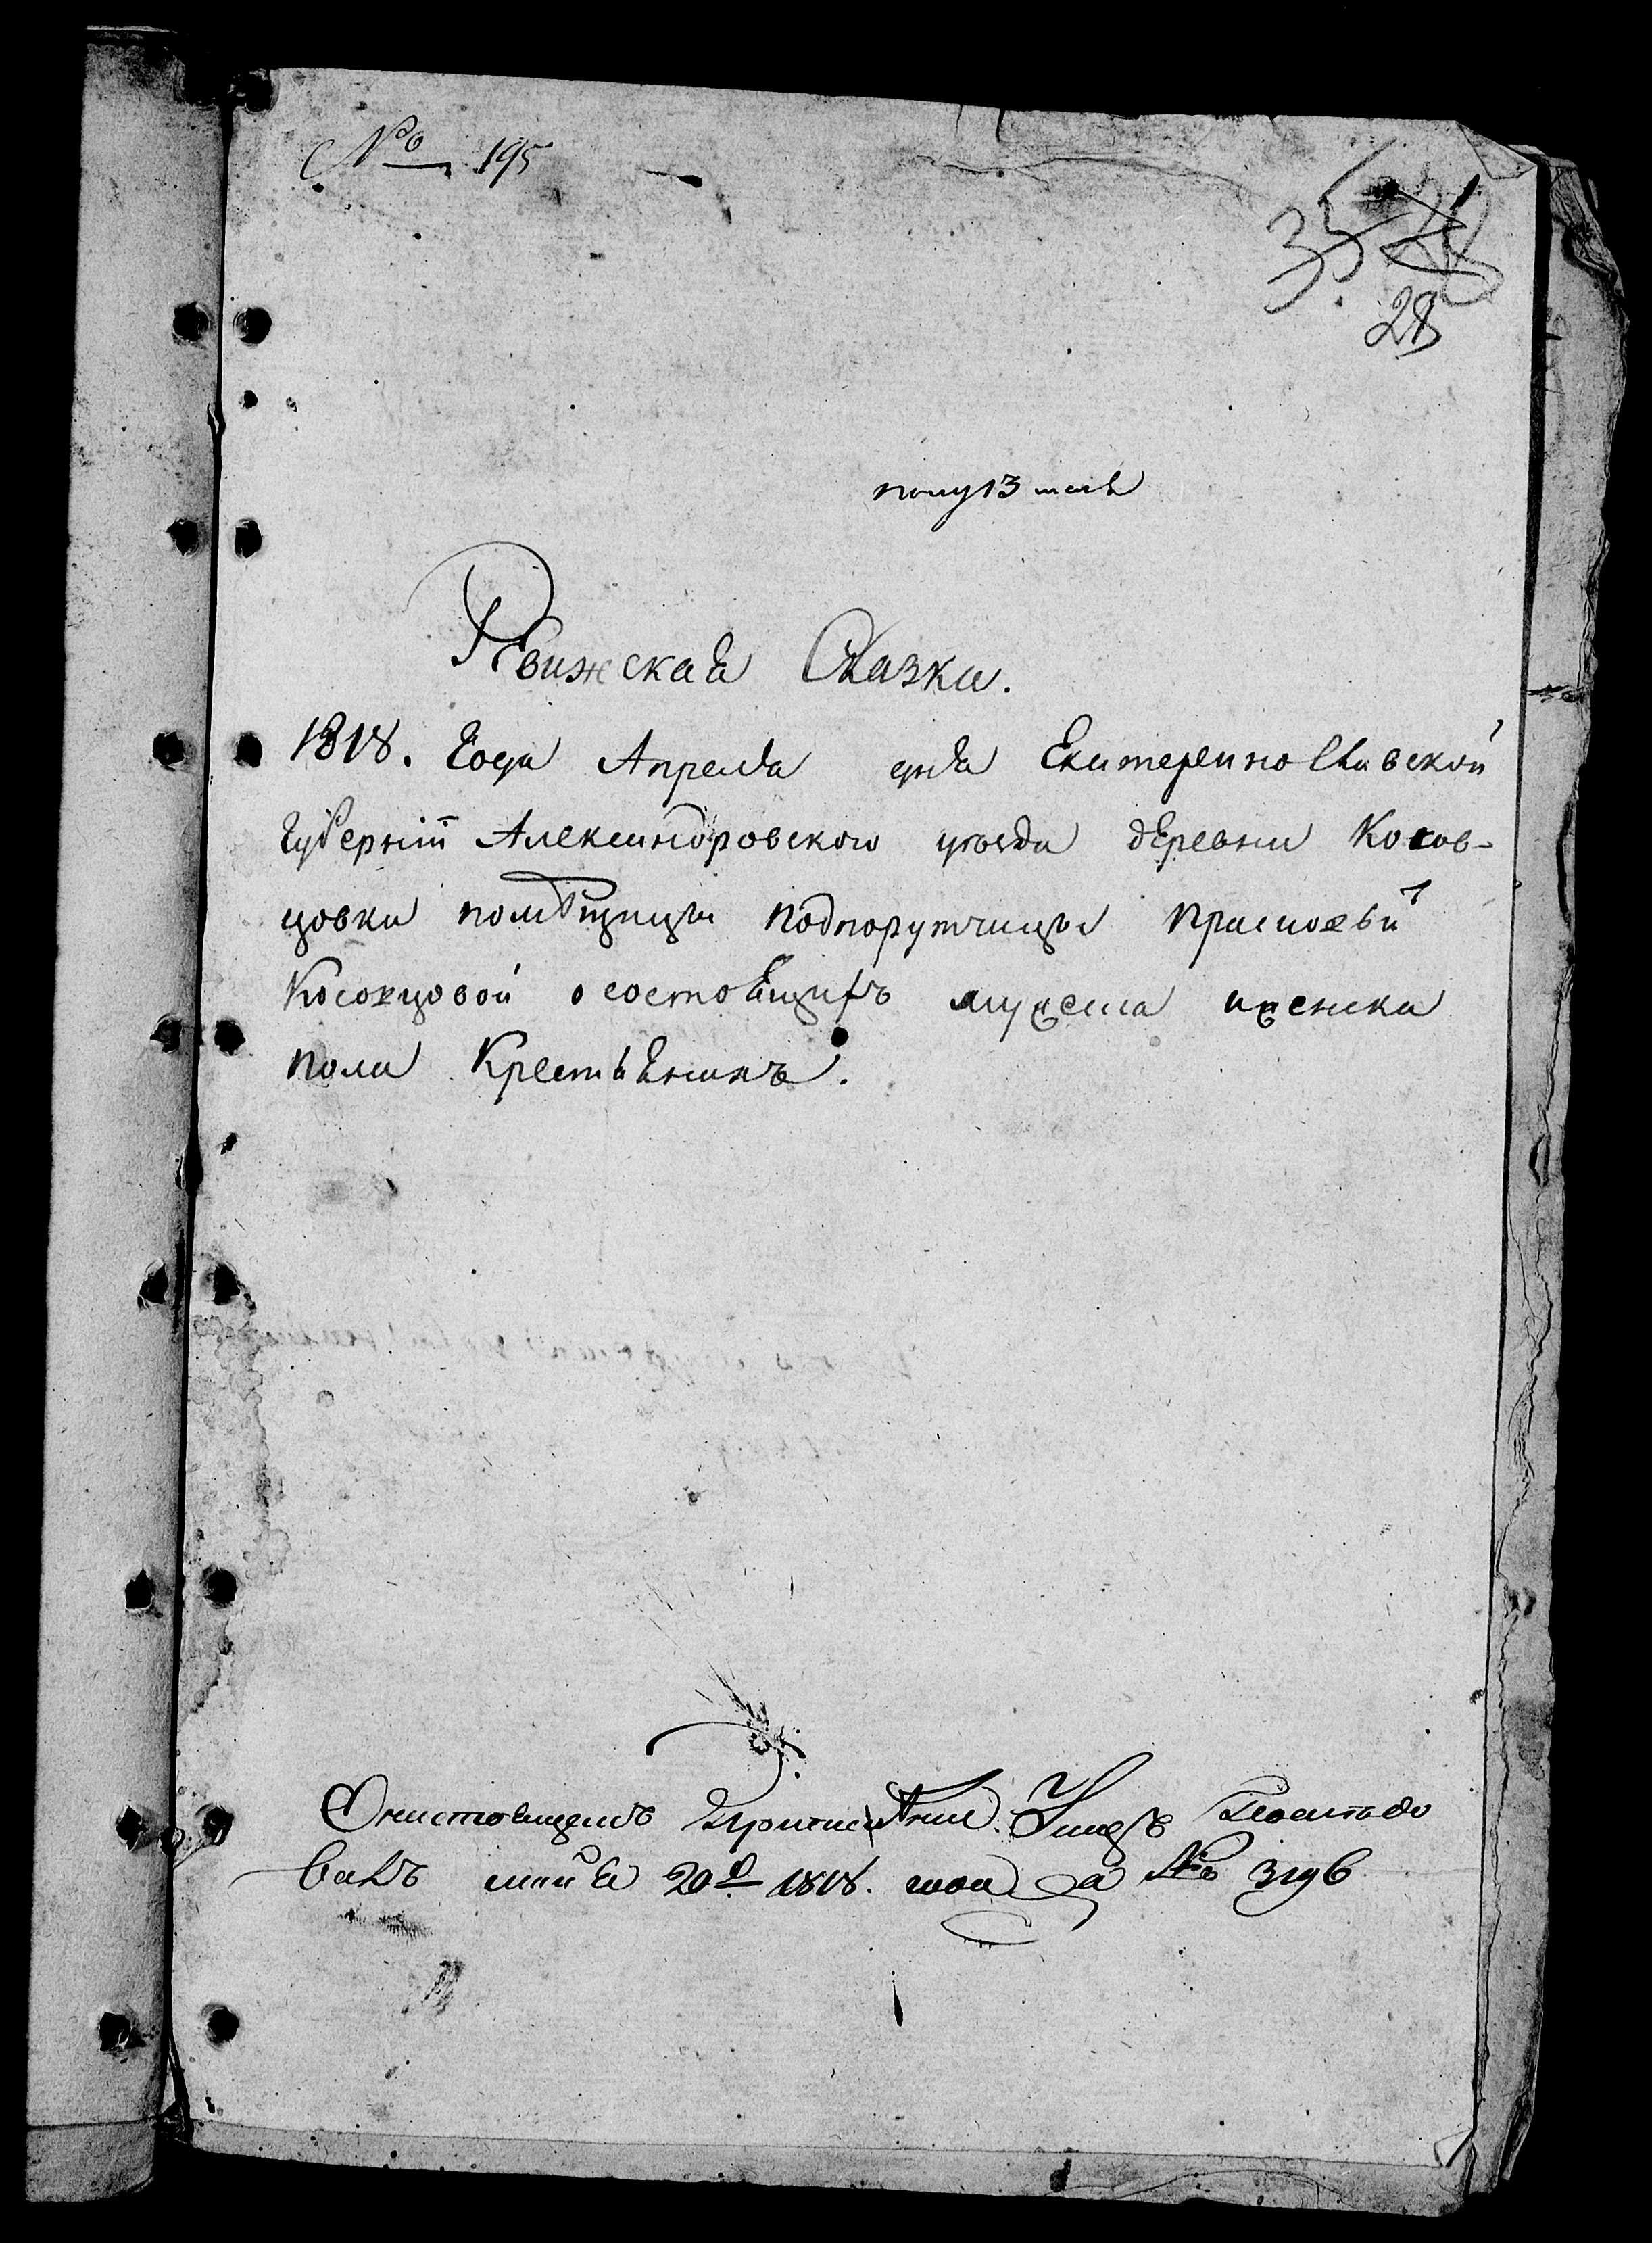 № 195
35
28
полу 13 мая
Ревижская Сказка.
1818. Года Апреля дня Екатеринославской
Губернiи Александровского уезда деревни Косов-
цовки помѣщицы подпорутчицы Прасковьи
Косовцовой о состоящихъ мужеска и женска
пола Крестьянахъ.
мая 20 1818. года за № 3196